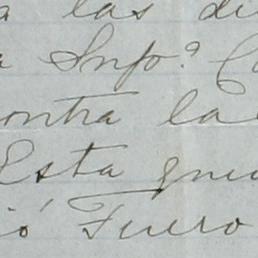 a las di
a Info? Co
ontra la
Esta que
ió Fuero